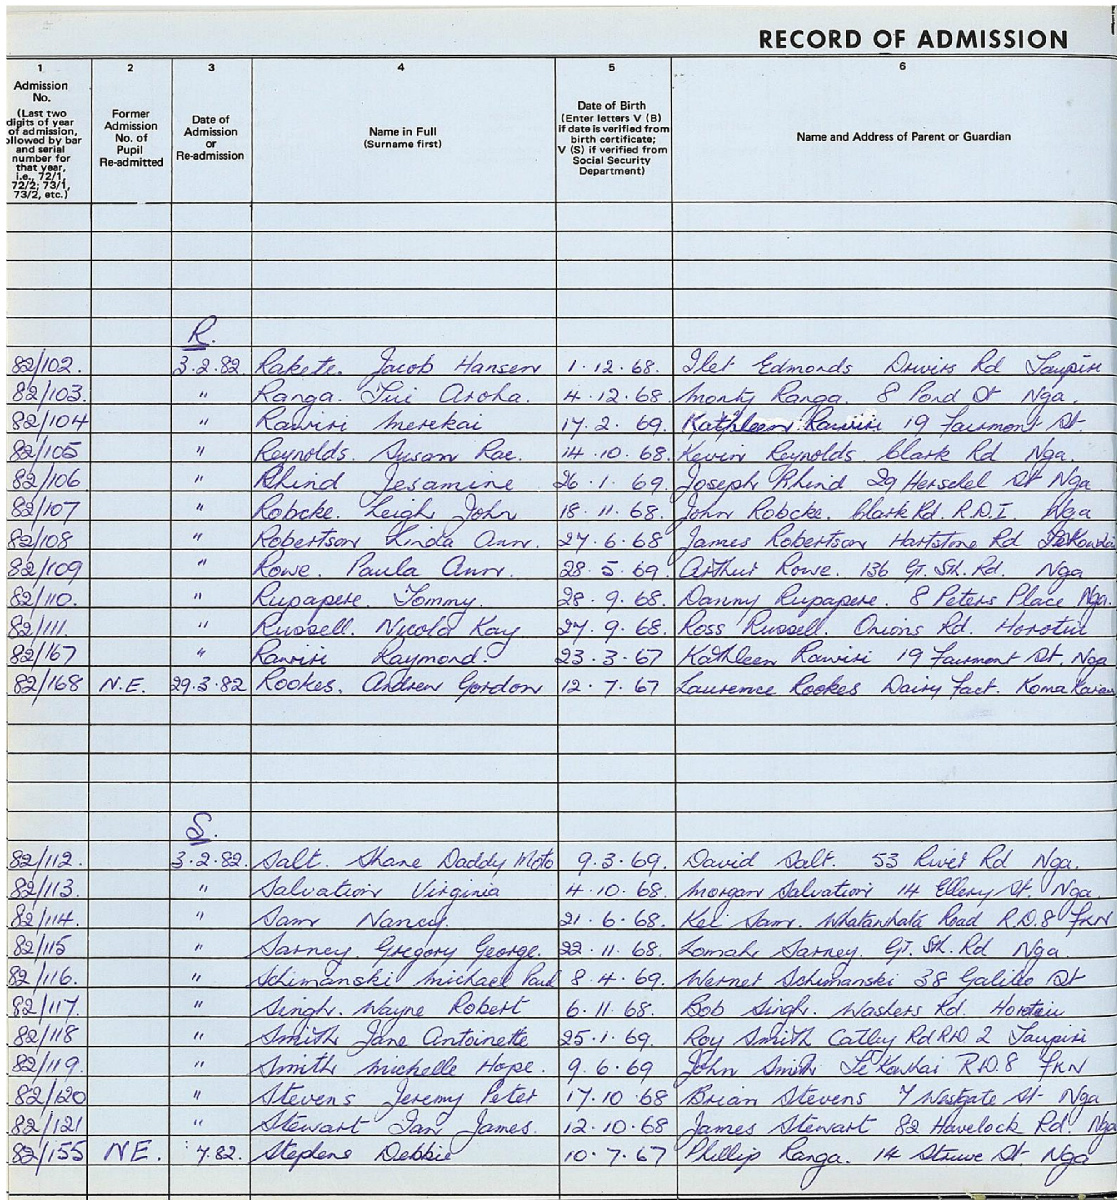 RECORD OF ADMISSION
1 2 3 4 5 6
Admission No. (Last two digits of year of admission, followed by bar and serial number for that year, i.e., 72/1, 72/2; 73/1, 73/2, etc.)
Former Admission No. of Pupil Re-admitted
Date of Admission or Re-admission
Name in Full (Surname first)
Date of Birth (Enter letters V (B) if date is verified from birth certificate; V (S) if verified from Social Security Department)
Name and Address of Parent or Guardian
R.
82/102. 3.2.82 Rakete. Jacob Hansen 1.12.68. Edmonds Drivers Rd Taupiri
82/103. " Ranga. Tui Aroha. 4.12.68. Monty Ranga. 8 Pond St Nga.
82/104 " Rawiri Merekai 17.2.69. Kathleen Rawiri 19 Fairmont St.
82/105 " Reynolds. Susan Rae. 14.10.68. Kevin Reynolds. Clark Rd Nga.
82/106 " Rhind Jesamine 26.1.69. Joseph Rhind 29 Herschel St Nga
82/107 " Robcke. Leigh John 18.11.68. John Robcke. Clark Rd. R.D.I. Nga
82/108 " Robertson Linda Ann. 27.6.68 James Robertson Hartstone Rd
82/109 " Rowe. Paula Ann. 28.5.69. Arthur Rowe. 136 Gt. Sth. Rd. Nga
82/110. " Rupapere. Tommy. 28.9.68. Danny Rupapere. 8 Peters Place Nga.
82/111. " Russell. Nicola Kay 27.9.68. Ross Russell. Onions Rd. Horotiu
82/167 " Rawiri Raymond. 23.3.67 Kathleen Rawiri 19 Fairmont St. Nga
82/168 N.E. 29.3.82 Rookes. Andrew Gordon 12.7.67 Laurence Rookes Dairy Fact.
S.
82/112. 3.2.82. Salt. Shane Daddy Moto 9.3.69. David Salt. 53 River Rd Nga.
82/113. " Salvation Virginia 4.10.68. Morgan Salvation 14 Ellery St. Nga
82/114. " Sam Nancy. 21.6.68. Kei Sam. Whatawhata Road R.D.8 FKN
82/115 " Sarney. Gregory George. 22.11.68. Lomah Sarney. Gt. Sth. Rd Nga
82/116. " Schimanski Michael Paul 8.4.69. Werner Schimanski 38 Galileo St
82/117. " Singh. Wayne Robert 6.11.68. Bob Singh. Washers Rd. Horotiu
82/118 " Smith Jane Antoinette 25.1.69. Roy Smith Catley Rd R.D. 2 Taupiri
82/119. " Smith Michelle Hope. 9.6.69 John Smith R.D.8 FKN
82/120 " Stevens Jeremy Peter 17.10.68 Brian Stevens 7 Westgate St. Nga
82/121 " Stewart Ian James. 12.10.68 James Stewart 82 Havelock Rd. Nga
82/155 N.E. 7.82. Stephens Debbie 10.7.67 Phillip Ranga. 14 Struwe St. Nga